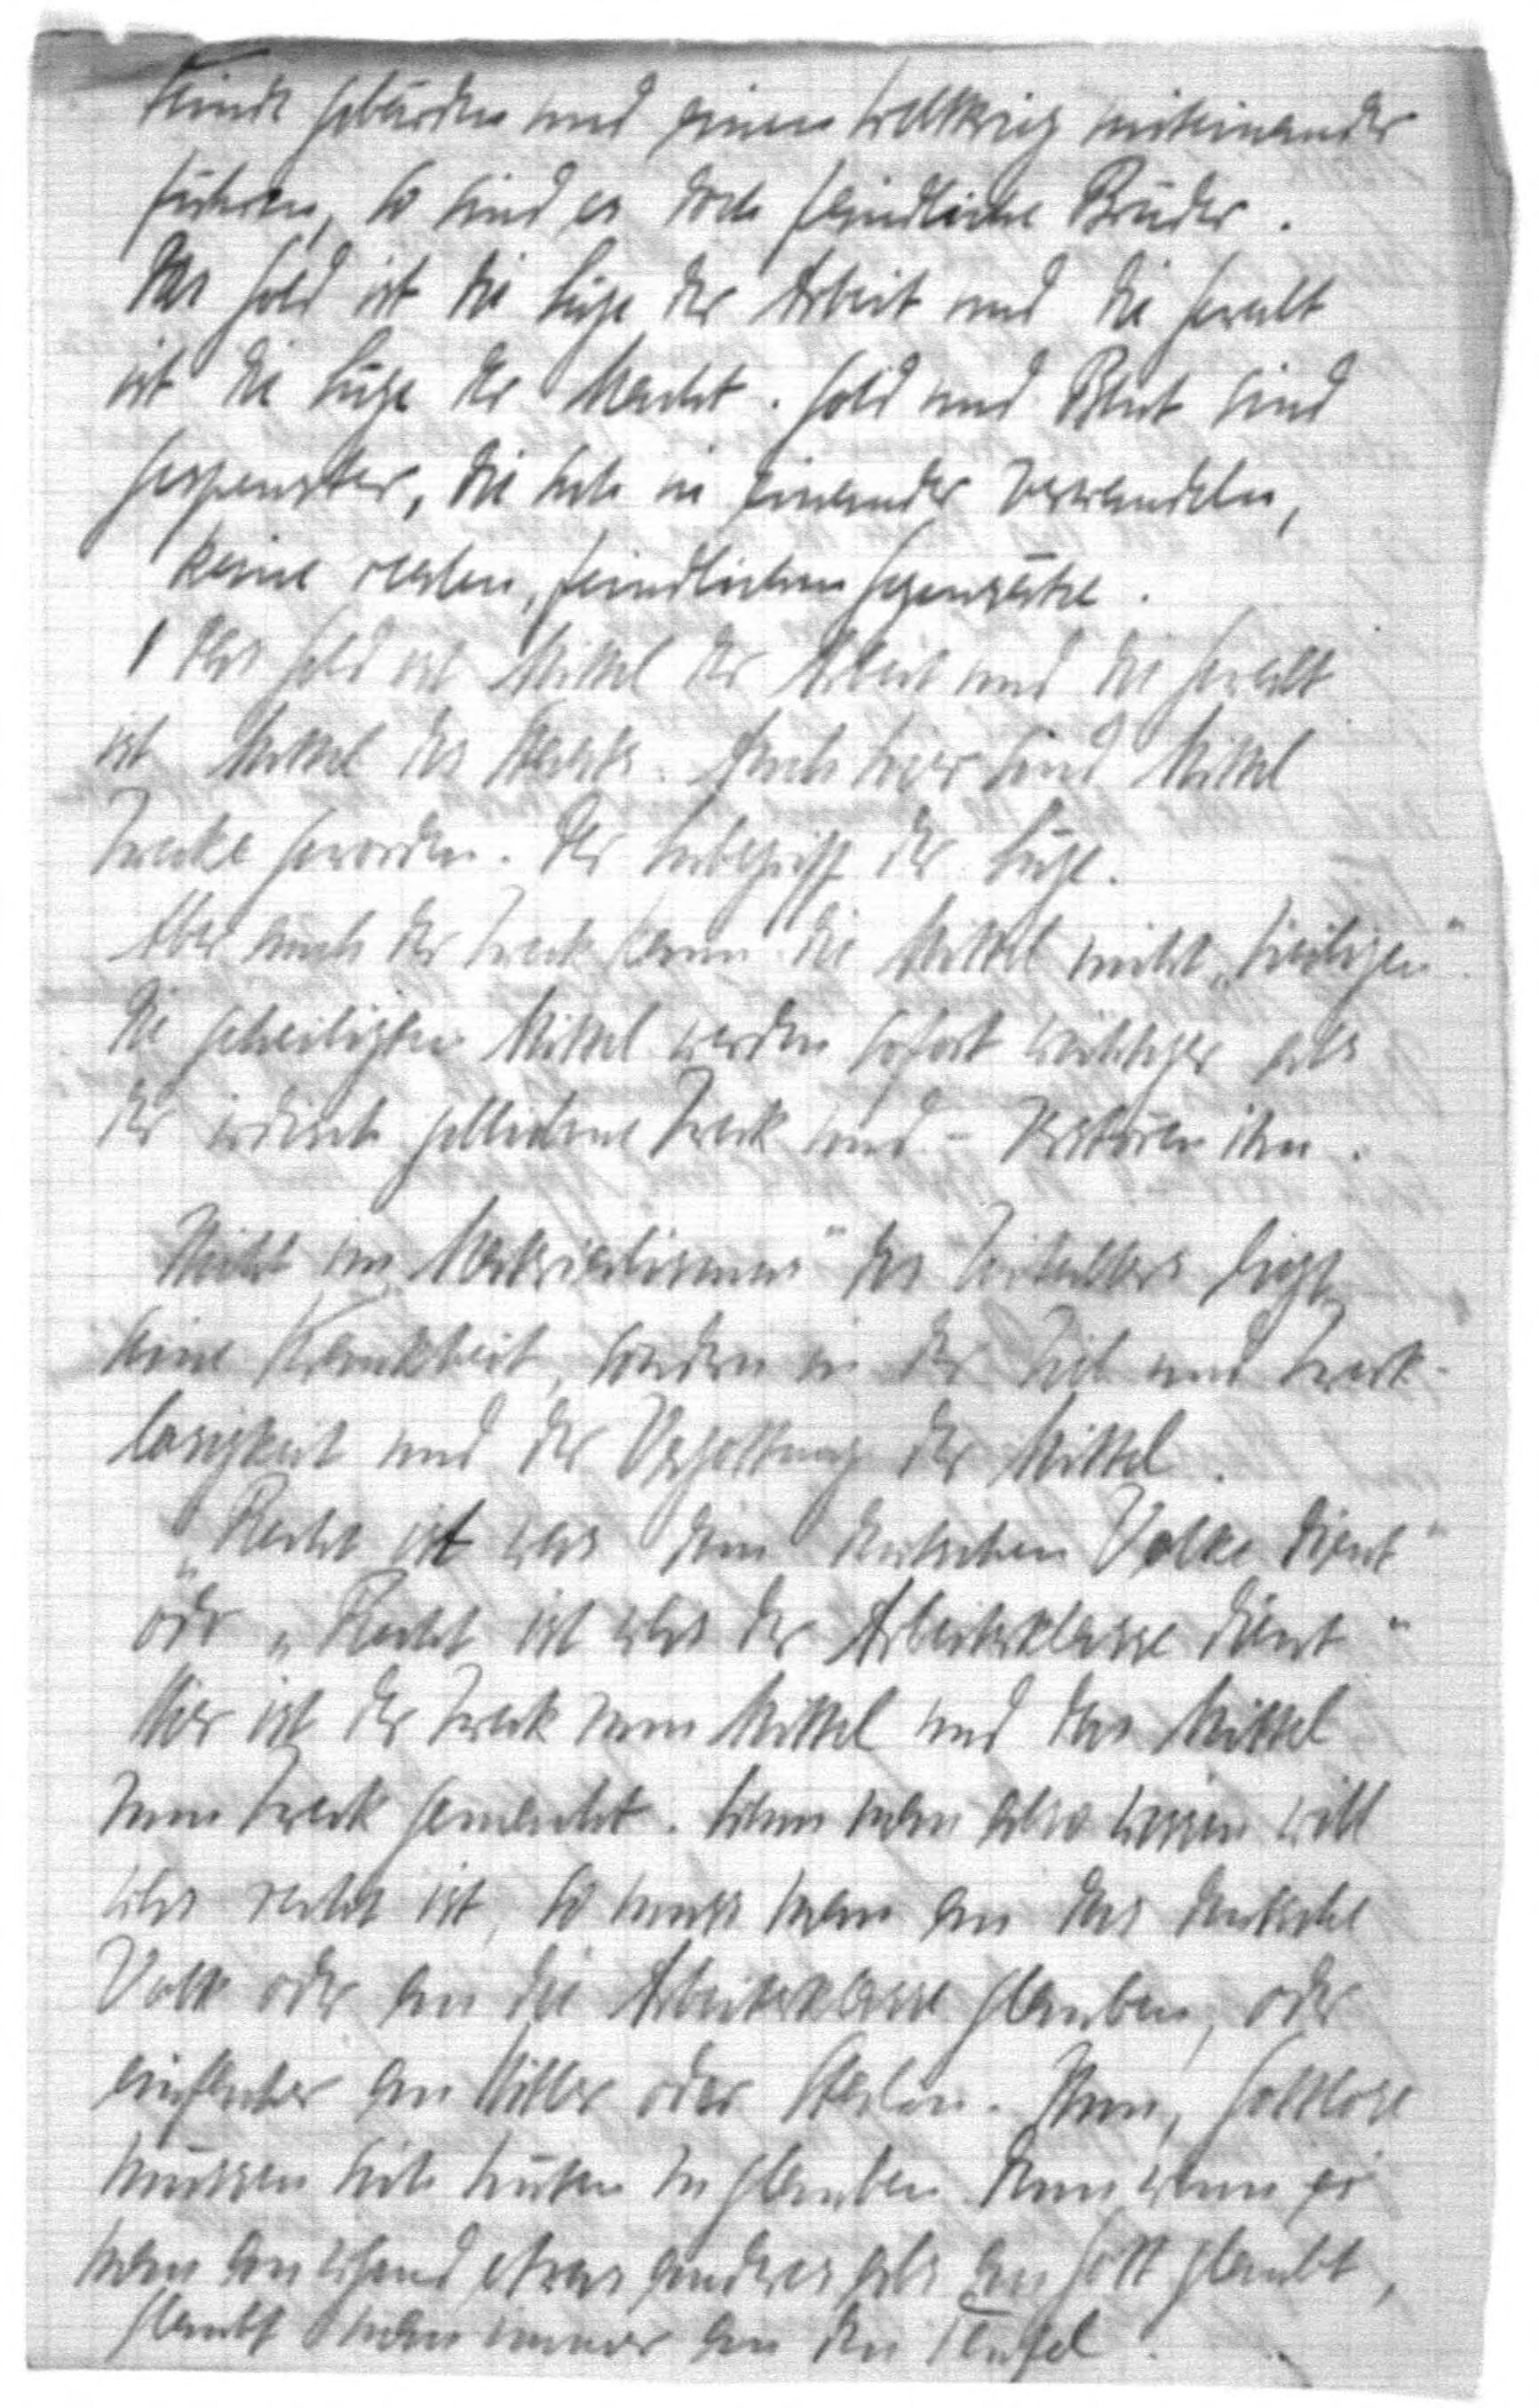 Feinde gebärden und einen Weltkrieg miteinander
führen, so sind es doch feindliche Brüder.
Das Gold ist die Lüge der Arbeit und die Gewalt
ist die Lüge der Macht. Gold und Blut sind
Gespenster, die sich in einander verwandeln,
keine realen, feindlichen Gegensätze.
Das Gold ist Mittel der Arbeit und die Gewalt
ist Mittel des Staats. Auch hier sind Mittel
Zwecke geworden. Der Inbegriff der Lüge.
Aber auch der Zweck kann die Mittel nicht „heiligen".
Die geheiligten Mittel werden sofort wichtiger als
der irdisch gebliebene Zweck und - zerstören ihn.
Nicht im „Materialismus" des Zeitalters liegt
seine Krankheit, sondern in der Ziel und Zweck-
losigkeit und der Vergottung der Mittel.
„Recht ist was dem deutschen Volke dient"
oder „Recht ist was der Arbeiterklasse dient"
Hier ist der Zweck zum Mittel und das Mittel
zum Zweck gemacht. Wenn man also wissen will
was recht ist, so muss man an das deutsche
Volk oder an die Arbeiterklasse glauben, oder
einfacher an Hitler oder Stalin. Nun, Gottlose
müssen sich hüten zu glauben. Denn wenn
man an irgend etwas anderes als an Gott glaubt,
glaubt man immer an den Teufel.